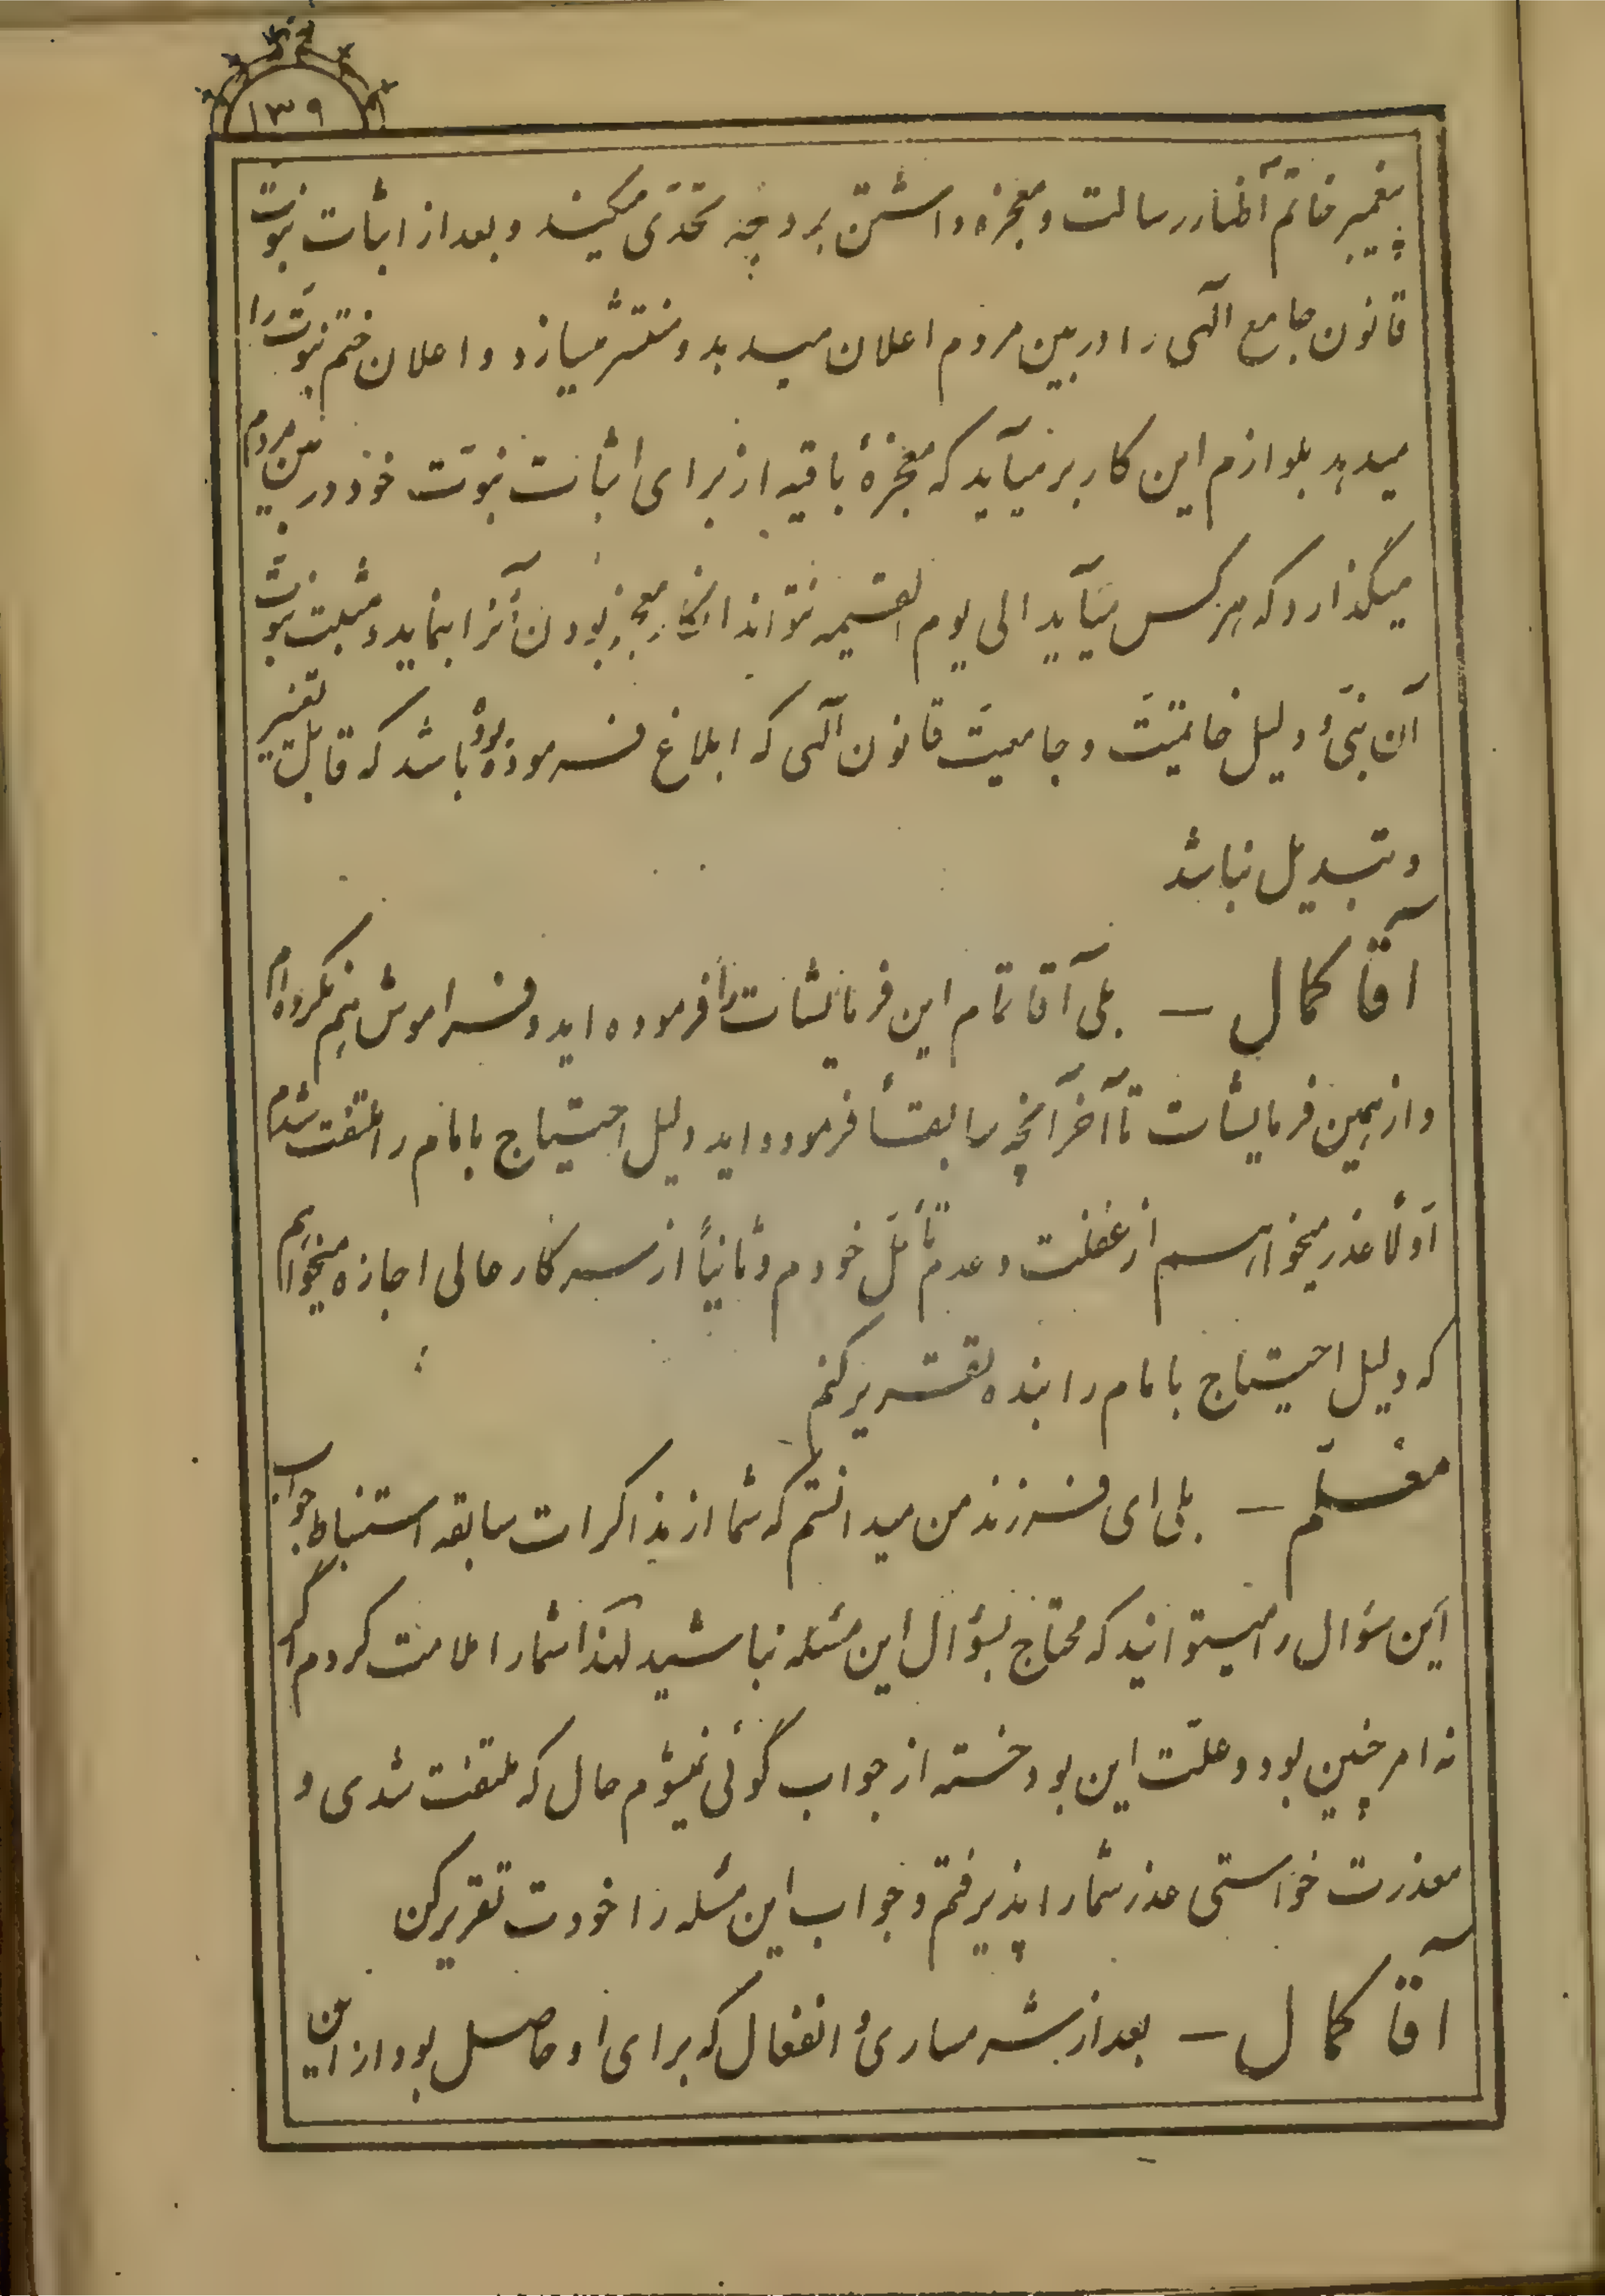 ۱۳۹
پیغمبر خاتم اظهار رسالت و معجزه داشتن بر وجه تحدّی میکند و بعد از اثبات نبوّت
قانون جامع الهی را در بین مردم اعلان میدهد و منتشر میسازد و اعلان ختم نبوّت را
میدهد بلوازم این کار برمیآید که معجزهٔ باقیه از برای اثبات نبوّت خود در بین مردم
میگذارد که هر کس میآید الی یوم القیمه نتواند انکار معجز بودن آنرا بنماید و مثبت نبوّت
آن نبیّ و دلیل خاتمیّت و جامعیّت قانون الهی که ابلاغ فرموده بوده باشد که قابل تغییر
و تبدیل نباشد
آقا کمال — بلی آقا تمام این فرمایشات را فرموده اید و فراموش هم نکرده ام
و از همین فرمایشات تا آخر آنچه سابقاً فرموده اید دلیل احتیاج بامام را ملتفت شدم
اوّلاً عذر میخواهم از غفلت و عدم تأمّل خودم و ثانیاً از سرکار عالی اجازه میخواهم
که دلیل احتیاج بامام را بنده تقریر کنم
معلّم — بلی ای فرزند من میدانستم که شما از مذاکرات سابقه استنباط جواب
این سؤال را میتوانید که محتاج بسؤال این مسئله نباشید لهذا شما را ملامت کردم اگر
نه امر چنین بود و علّت این بود خسته از جواب گوئی نمیشوم حال که ملتفت شدی و
معذرت خواستی عذر شما را پذیرفتم و جواب این مسئله را خودت تقریر کن
آقا کمال — بعد از شرمساری و انفعال که برای او حاصل بود از این